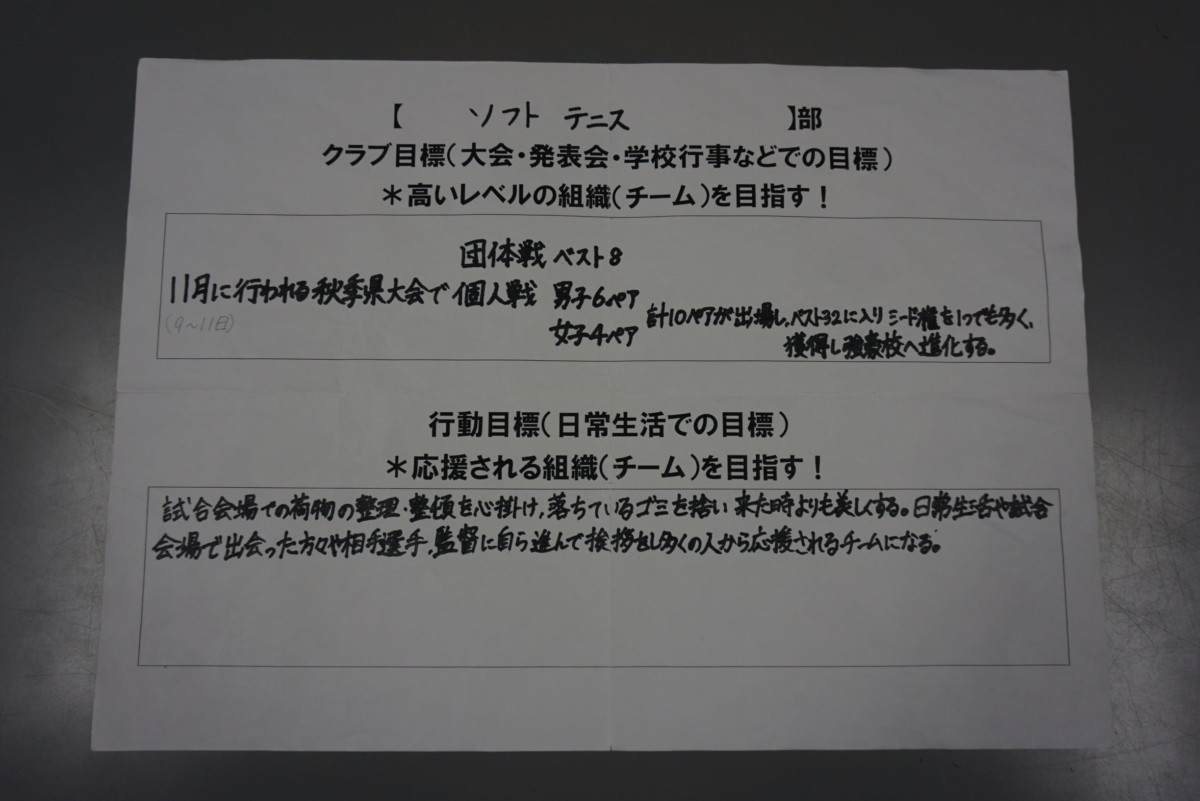 【 ソフト テニス 】部
クラブ目標(大会・発表会・学校行事などでの目標)
＊高いレベルの組織(チーム)を目指す!
団体戦 ベスト8
11月に行われる秋季県大会で 個人戦 男子6ペア
(9〜11日)
女子4ペア
計10ペアが出場し、ベスト32に入りシード権を1つでも多く、
獲得し強豪校へ進化する。
行動目標(日常生活での目標)
＊応援される組織(チーム)を目指す!
試合会場での荷物の整理・整頓を心掛け、落ちているゴミを捨い 来た時よりも美しくする。日常生活や試合
会場で出会った方々や相手選手、監督に自ら進んで挨拶をし多くの人から応援されるチームになる。